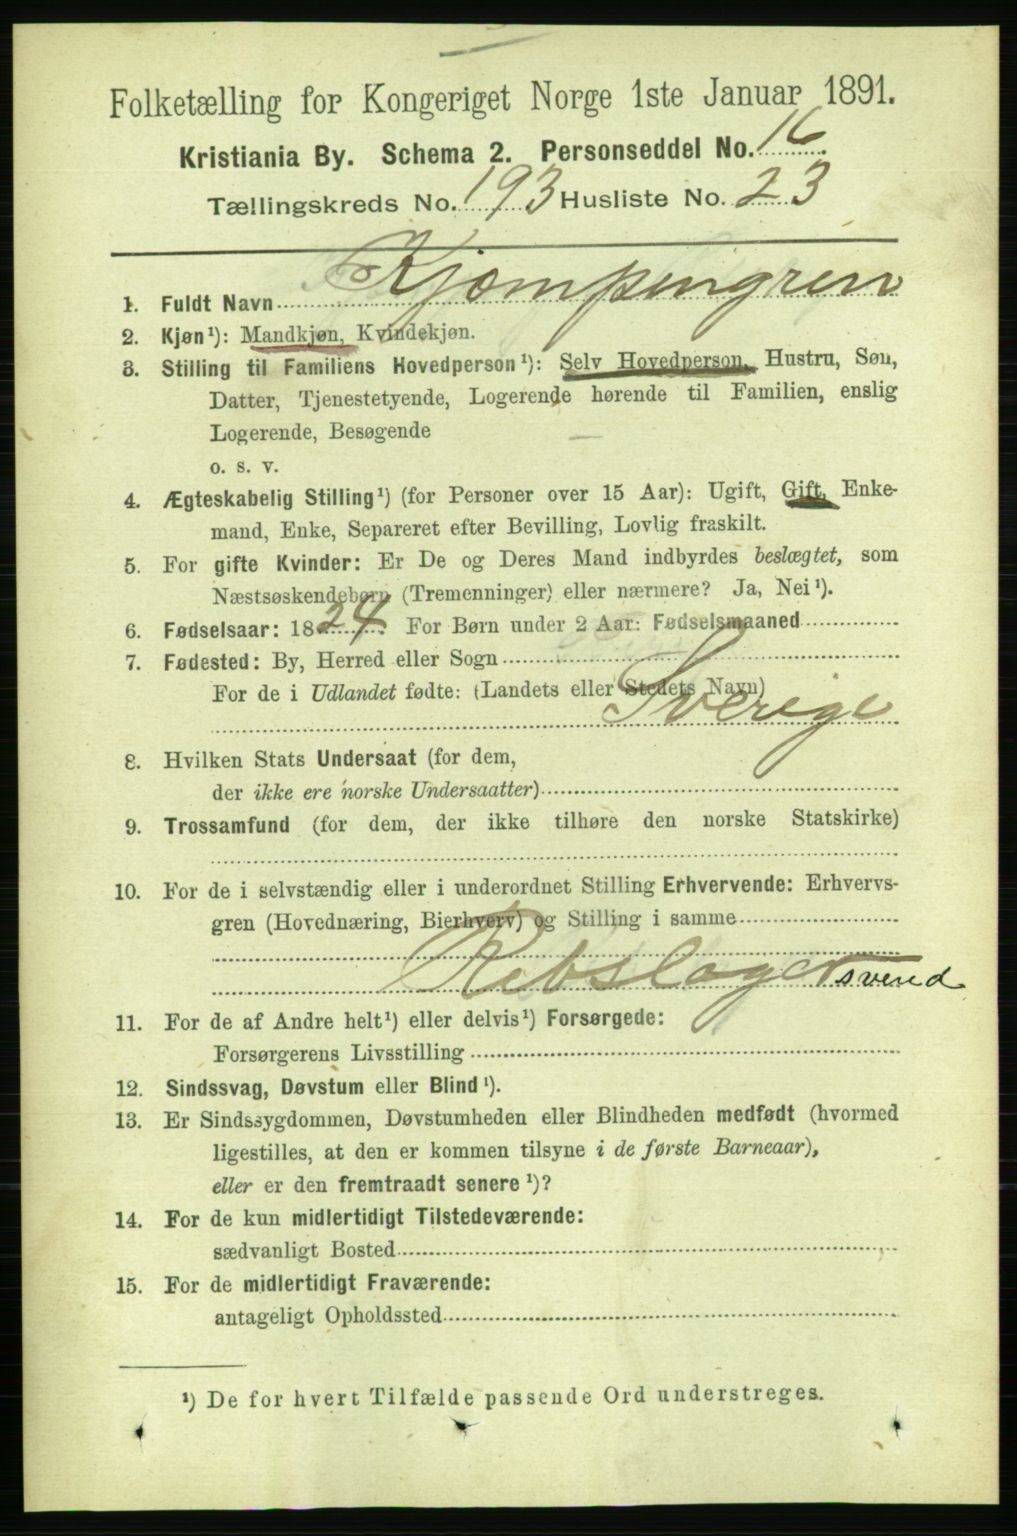 Folketælling for Kongeriget Norge 1ste Januar 1891.
Kristiania By. Schema 2. Personseddel No. 16.
Tællingskreds No. 193 Husliste No. 23
1. Fuldt Navn Kjæmpengren
2. Kjøn¹): Mandkjøn, Kvindekjøn.
3. Stilling til Familiens Hovedperson¹): Selv Hovedperson, Hustru, Søn,
Datter, Tjenestetyende, Logerende hørende til Familien, enslig
Logerende, Besøgende
o. s. v.
4. Ægteskabelig Stilling¹) (for Personer over 15 Aar): Ugift, Gift, Enke-
mand, Enke, Separeret efter Bevilling, Lovlig fraskilt.
5. For gifte Kvinder: Er De og Deres Mand indbyrdes beslægtet, som
Næstsøskendebørn (Tremenninger) eller nærmere? Ja, Nei¹).
6. Fødselsaar: 1824. For Børn under 2 Aar: Fødselsmaaned
7. Fødested: By, Herred eller Sogn
For de i Udlandet fødte: (Landets eller Stedets Navn)
Sverige
8. Hvilken Stats Undersaat (for dem,
der ikke ere norske Undersaatter)
9. Trossamfund (for dem, der ikke tilhøre den norske Statskirke)
10. For de i selvstændig eller i underordnet Stilling Erhvervende: Erhvervs-
gren (Hovednæring, Bierhverv) og Stilling i samme
Rebslagersvend
11. For de af Andre helt¹) eller delvis¹) Forsørgede:
Forsørgerens Livsstilling
12. Sindssvag, Døvstum eller Blind¹).
13. Er Sindssygdommen, Døvstumheden eller Blindheden medfødt (hvormed
ligestilles, at den er kommen tilsyne i de første Barneaar),
eller er den fremtraadt senere¹)?
14. For de kun midlertidigt Tilstedeværende:
sædvanligt Bosted
15. For de midlertidigt Fraværende:
antageligt Opholdssted
¹) De for hvert Tilfælde passende Ord understreges.